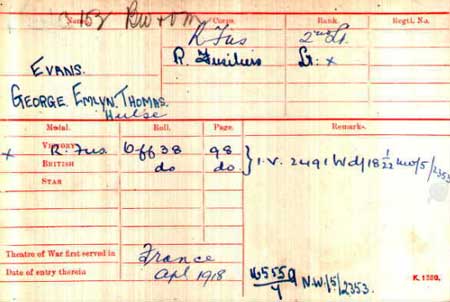 Name. Corps. Rank. Regtl. No.
R. Fus 2nd Lt.
R. Fusiliers Lt. x
EVANS.
GEORGE. EMLYN. THOMAS.
Hulse
Medal. Roll. Page. Remarks.
x VICTORY R. Fus. Off 38 98
BRITISH do do. I.V. 2491
STAR
Theatre of War first served in France
Date of entry therein Apl 1918
165559 N.W/5/2353.
K. 1380.